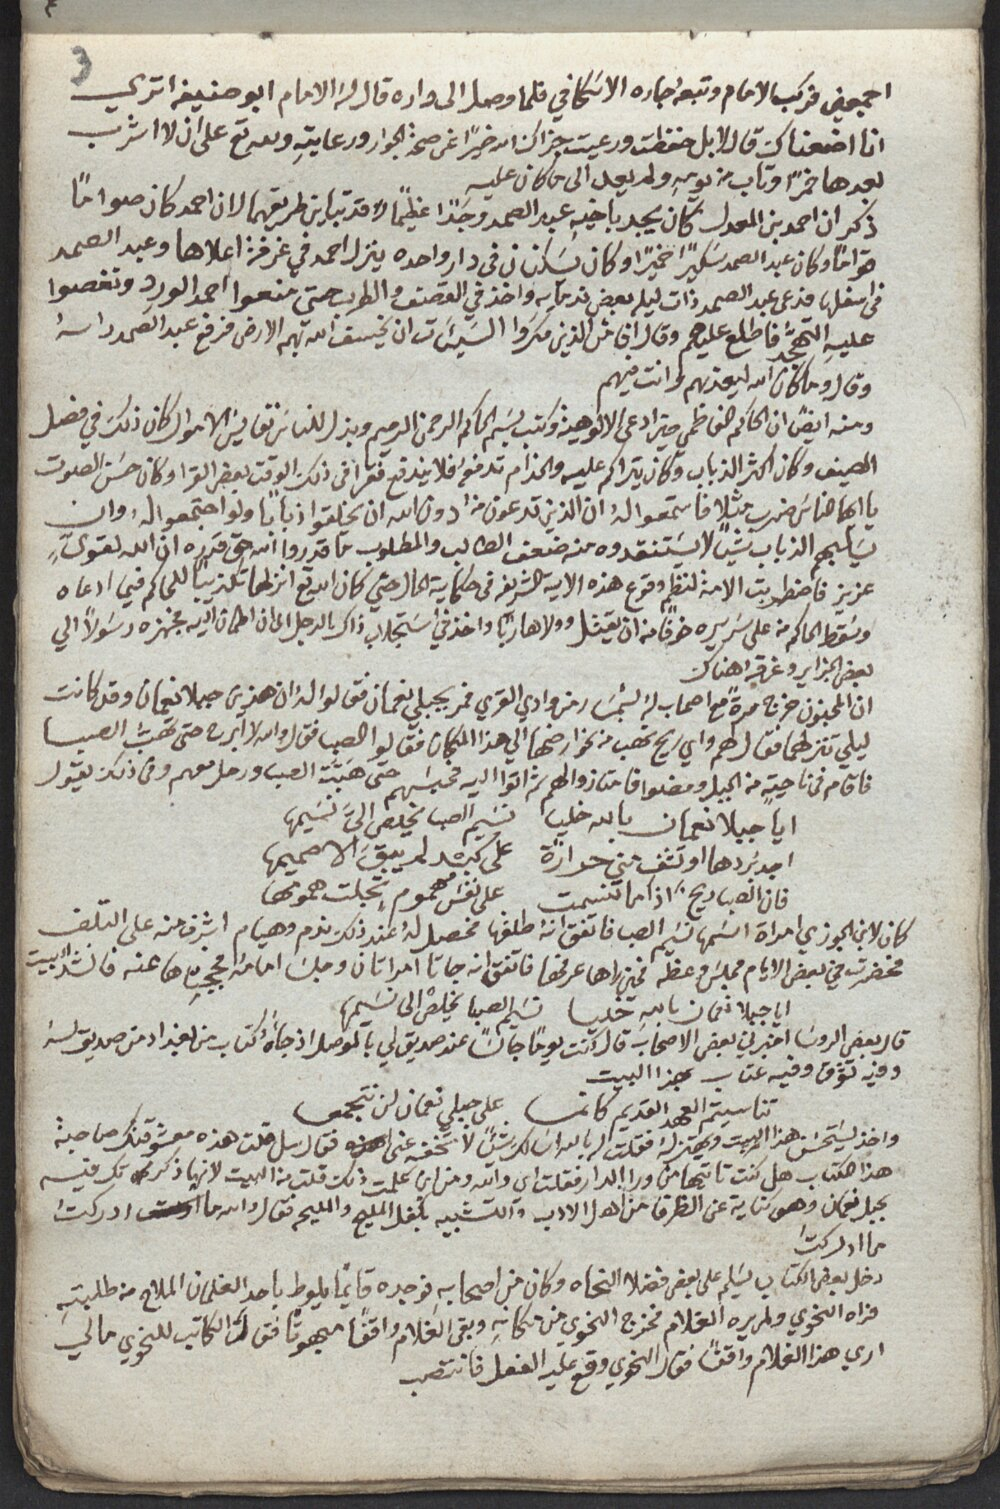 3
اجمعين فركب الامام وتبعه جاره الاسكافي فلما وصل الى داره قال له الامام ابو حنيفه اتري
انا اضعناك قال لا بل حفظت ورعيت جزاك الله خيرًا عن صحة الجوار ورعايته ولله تع على ان لا اشرب
بعدها خمرًا وتاب من يومه ولم يعد الى ما كان عليه
ذكر ان احمد بن المعدل كان يجد باخيه عبد الصمد وجدًا عظيمًا لا تباين طريقهما لان احمد كان صوامًا
قوامًا وكان عبد الصمد سكيرًا خميرًا وكان يسكنان في دار واحده ينزل احمد في غرفة اعلاها وعبد الصمد
في اسفلها فدعى عبد الصمد ذات ليله بعض ندمايه واخذ في القصف والطرب حتى منعوا احمد الورد ونغصوا
عليه التهجد فاطلع عليهم وقال افامن الذين مكروا السيئات ان يخسف الله بهم الارض فرفع عبد الصمد راسه
وقال وما كان الله ليعذبهم وانت فيهم
ومنه ايضًا ان الحاكم الفاطمي حين ادعى الالوهية وكتب بسم الحاكم الرحمن الرحيم وبذل للناس نفايس الاموال كان ذلك في فصل
الصيف وكان اكثر الذباب وكان يتراكم عليه والخدام تدفعه فلا يندفع فقرا في ذلك الوقت بعض القرا وكان حسن الصوت
يا ايها الناس ضرب مثلا فاستمعوا له ان الذين تدعون من دون الله ان يخلقوا ذبابًا ولو اجتمعوا له وان
يسلبهم الذباب شيًا لا يستنقذوه منه ضعف الطالب والمطلوب ما قدروا الله حق قدره ان الله لقوي
عزيز فاضطربت الامة لنظم وقوع هذه الاية الشريفه في حكاية الحال حتى كان الله تع انزلها تكذيبًا للحاكم فيما ادعاه
وسقط الحاكم من على سريره خوفًا من ان يقتل وولا هاربًا واخذ في استجلاب ذاك الرجل الى ان اطمان اليه فجهزه رسولًا الي
بعض الجزاير وغرقه هناك
ان المجنون خرج مرةً مع اصحاب له من وادي القري فمر بجبلي نعمان فقالوا له ان هذين جبلا نعمان وقد كانت
ليلي تنزلهما فقال لهم واي ريح تهب من نحو ارضها الي هذا المكان فقالوا الصبا فقال والله لا ابرح حتى تهب الصبا
فاقام في ناحية من الجبل ومضوا فامتازوا لهم ثم اتوا اليه فحبسهم حتى هبت الصبا ورحل معهم وفي ذلك يقول
ايا جبلا نعمان بالله خليا   نسيم الصبا يخلص الي نسيمها
اجد بردها او تشف مني حرارة   على كبد لم يبق الا صميمها
فان الصبا ريح اذا ما تنسمت   على نفس مهموم تجلت همومها
كان لابن الجوزي امراة اسمها نسيم الصبا فاتفق انه طلقها فحصل له عند ذلك ندم وهيام اشرف منه على التلف
فحضرت في بعض الايام مجلس وعظه فحين راها عرفها فاتفق انه جاتا امراتان وجلسا امامه فحجبتاها عنه فانشد البيت
ايا جبلا نعمان بالله خليا   نسيم الصبا يخلص الى نسيمها
قال بعض الروسا اخبرني بعض الاصحاب قال كنت يومًا جالسًا عند صديق لي بالموصل اذ جاه كتاب من بغداد من صديق له
وفيه تشوق وفيه عتاب بهذا البيت
تناسيتم العهد القديم كاننا   على جبلي نعمان لن نتجمعا
واخذ يستحسن هذا البيت ويهتز له فقلت له بالله اسالك شيئًا لا تخفه عني فقال سل قلت هذه معشوقتك صاحبة
هذا الكتاب هل كنت تاتيها من ورا الدار فقال اي والله ومن اين علمت ذلك قلت من البيت لانها ذكرتك فيه
بجبل نعمان وهو كناية عن الظرفا من اهل الادب والتشبيه بكفل المليح والمليح فقال والله ما ادركت
ما ادركت
دخل بعض الكتاب يسلم على بعض فضلا النحاه وكان من اصحابه فوجده قايمًا يلوط باحد الغلمان الملاح من طلبته
فراه النحوي ولم يره الغلام فخرج النحوي من مكانه وبقى الغلام واقفًا مبهوتًا فقال الكاتب للنحوي مالي
اري هذا الغلام واقفًا فقال النحوي وقع عليه الفعل فانتصب